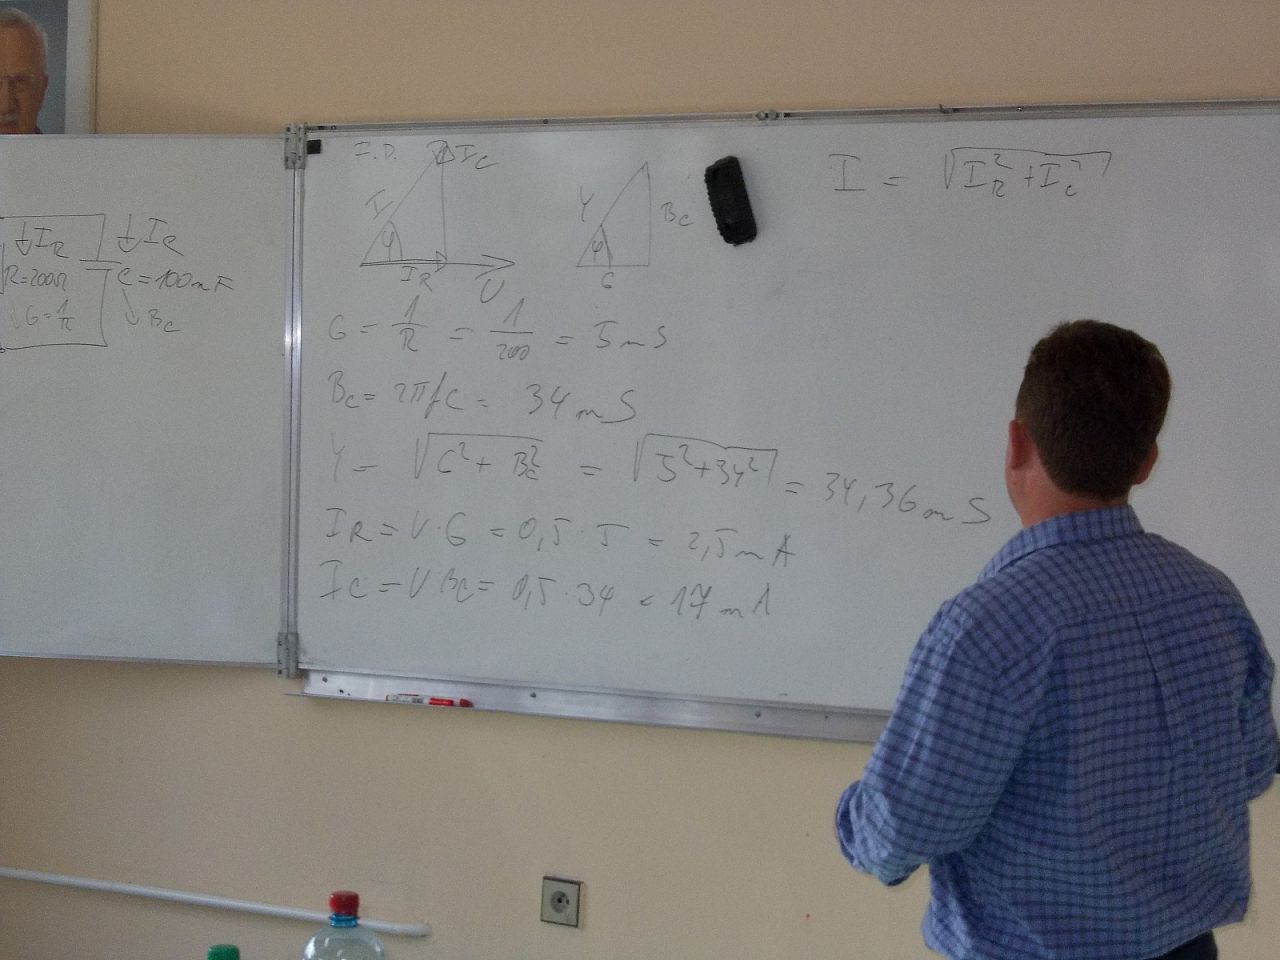 ↓IR ↓IC
R=200Ω C=100nF
↓G=1/R ↓BC
I.D. IC
I
φ
IR U
Y BC
φ
G
I = √(IR² + IC²)
G = 1/R = 1/200 = 5mS
BC = 2πfC = 34mS
Y = √(G² + BC²) = √(5² + 34²) = 34,36mS
IR = U·G = 0,5·5 = 2,5mA
IC = U·BC = 0,5·34 = 17mA